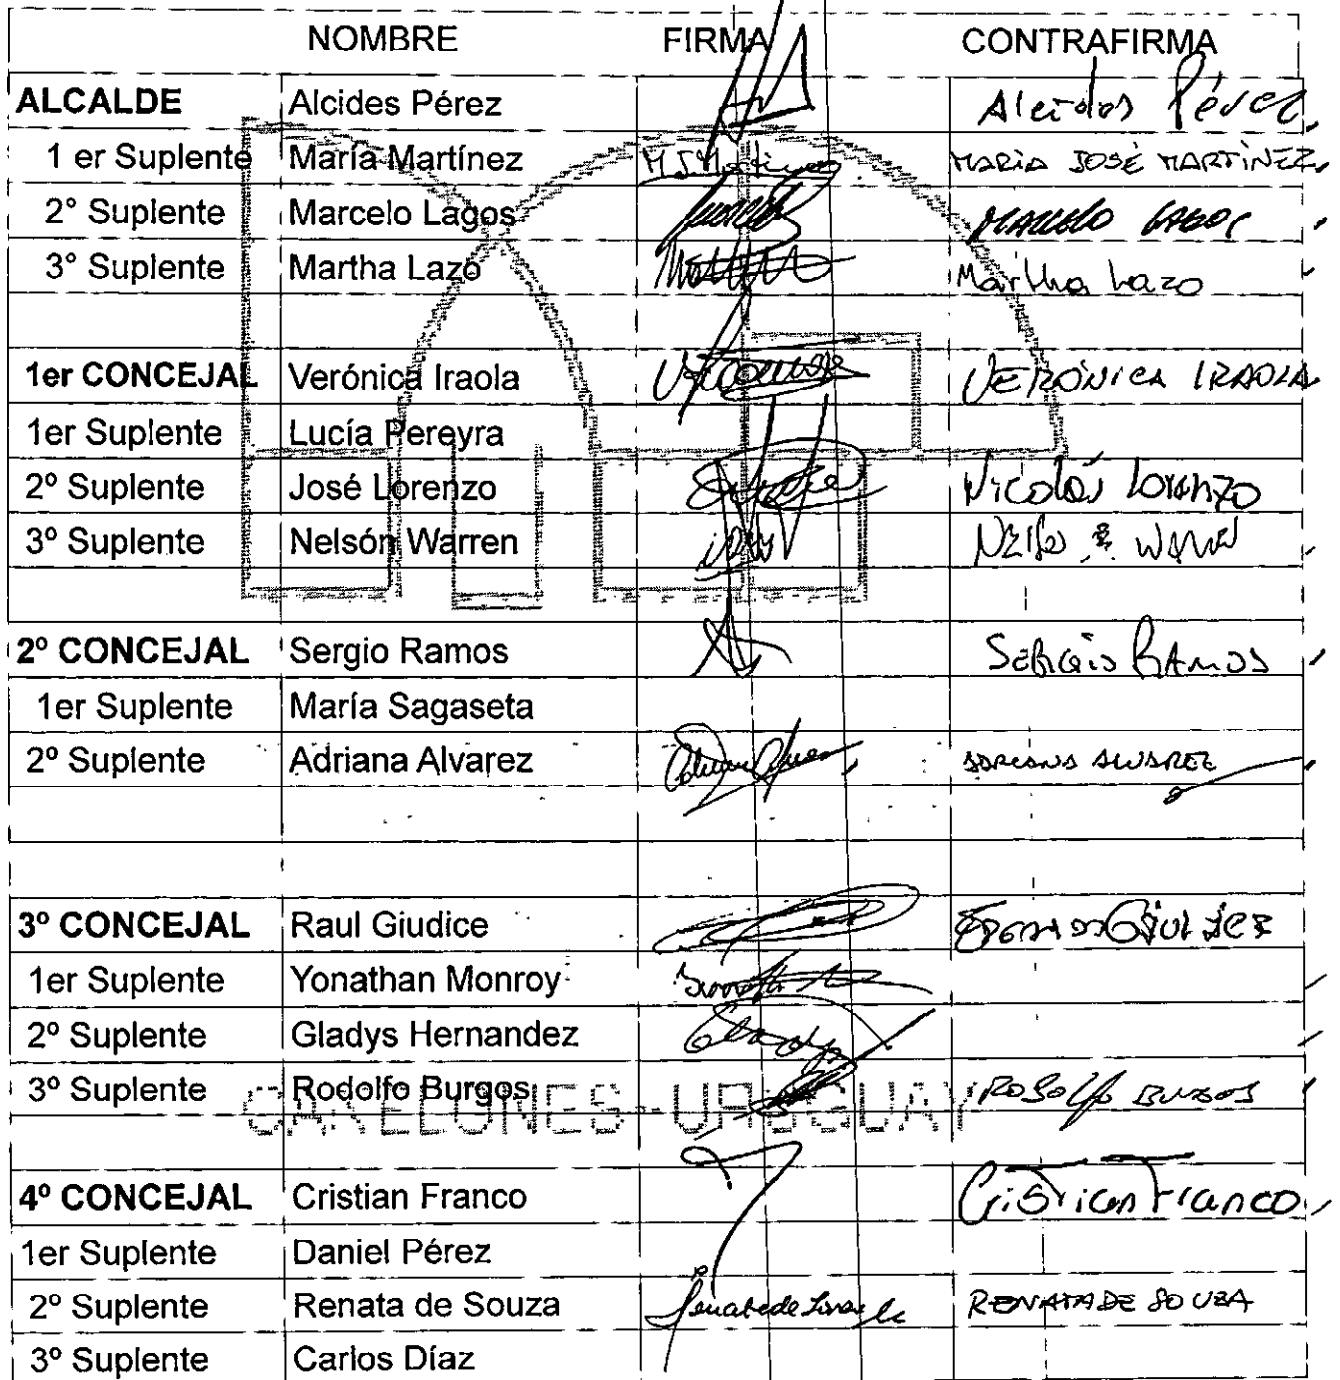 NOMBRE FIRMA CONTRAFIRMA
ALCALDE Alcides Pérez Alcides Pérez
1 er Suplente María Martínez M J Martinez MARÍA JOSÉ MARTÍNEZ
2° Suplente Marcelo Lagos MARCELO LAGOS
3° Suplente Martha Lazo Martha Lazo
1er CONCEJAL Verónica Iraola VERÓNICA IRAOLA
1er Suplente Lucía Pereyra
2º Suplente José Lorenzo Nicolás Lorenzo
3º Suplente Nelsón Warren
2º CONCEJAL Sergio Ramos SERGIO RAMOS
1er Suplente María Sagaseta
2º Suplente Adriana Alvarez ADRIANA ALVAREZ
3º CONCEJAL Raul Giudice
1er Suplente Yonathan Monroy
2º Suplente Gladys Hernandez Gladys
3º Suplente Rodolfo Burgos Rodolfo BURGOS
CANELONES-URUGUAY
4º CONCEJAL Cristian Franco Cristian Franco
1er Suplente Daniel Pérez
2º Suplente Renata de Souza RENATA DE SOUZA
3º Suplente Carlos Díaz